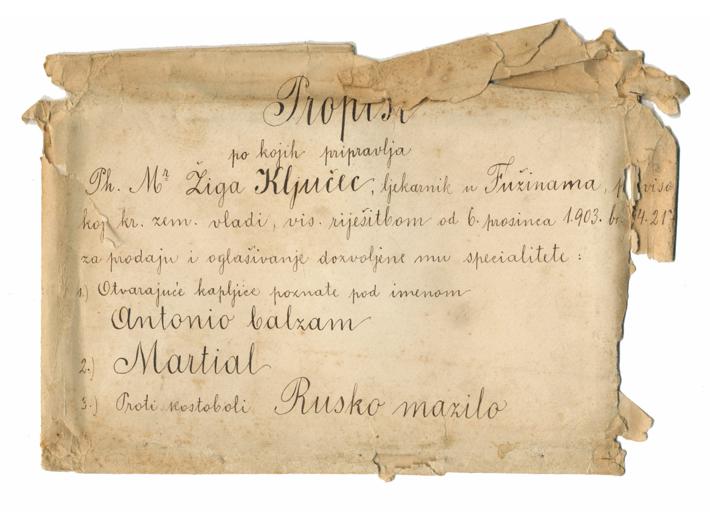 Propisi
po kojih pripravlja
Ph. Mr Žiga Ključec, ljekarnik u Fužinama,
koj kr. zem. vladi, vis. riješitbom od 6. prosinca 1903. br.
za prodaju i oglašivanje dozvoljene mu specialitete :
1.) Otvarajuće kapljice poznate pod imenom
Antonio balzam
2.) Martial
3.) Proti kostoboli Rusko mazilo